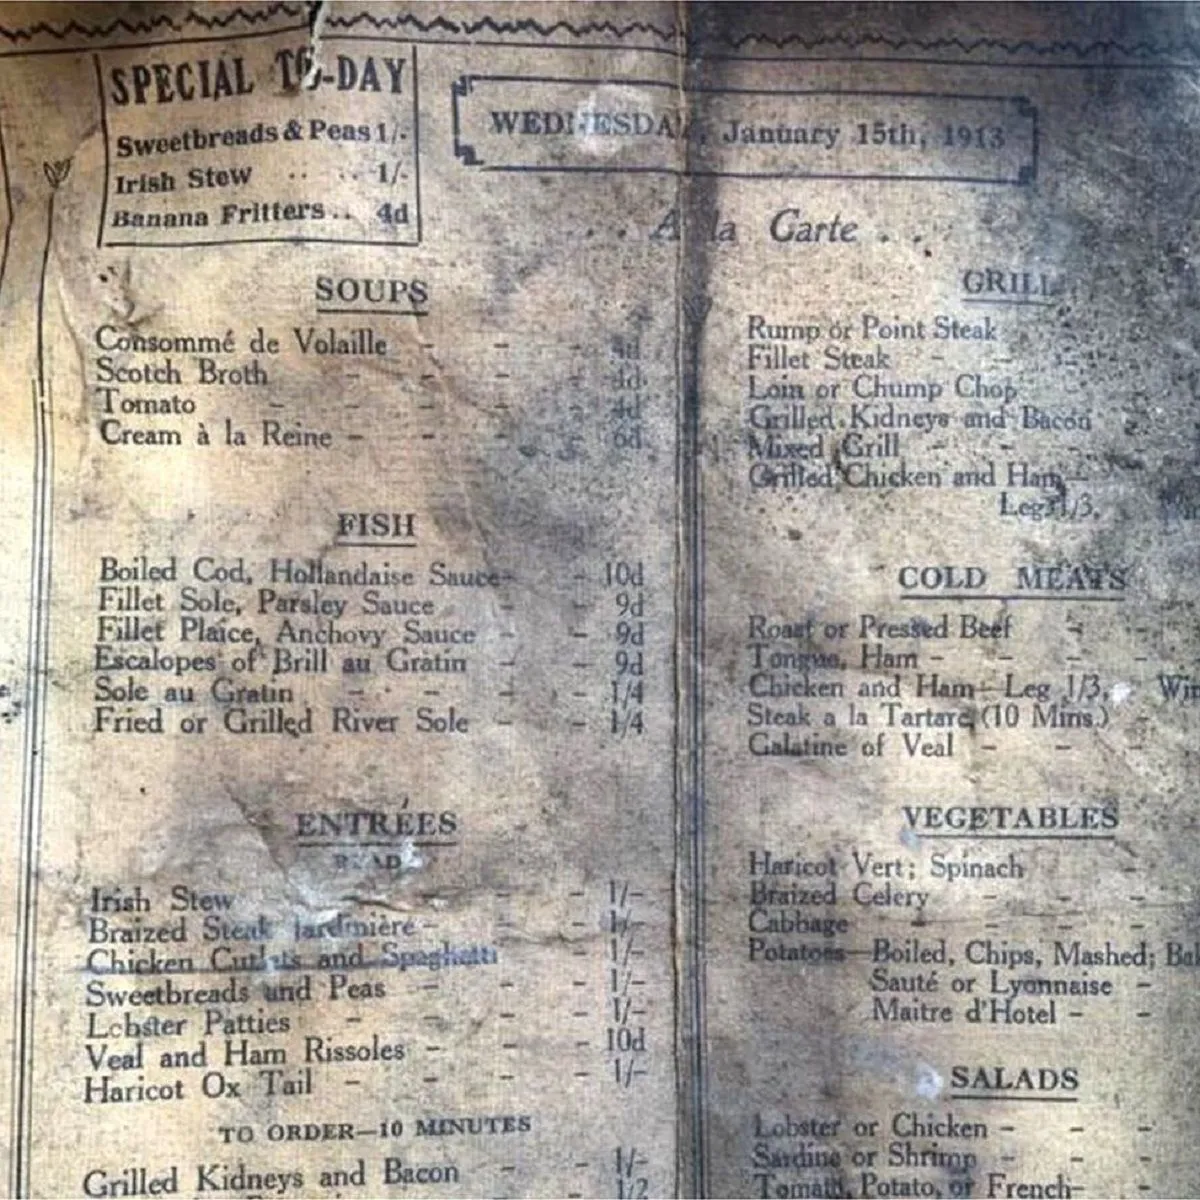 SPECIAL TO-DAY
Sweetbreads & Peas 1/-
Irish Stew .. .. 1/-
Banana Fritters .. 4d
WEDNESDAY, January 15th, 1913
. . A la Carte . .
SOUPS
Consommé de Volaille - - -
Scotch Broth - - - - 4d
Tomato - - - - 4d
Cream à la Reine - - - - 6d
FISH
Boiled Cod, Hollandaise Sauce - - 10d
Fillet Sole, Parsley Sauce - - 9d
Fillet Plaice, Anchovy Sauce - - 9d
Escalopes of Brill au Gratin - - 9d
Sole au Gratin - - - - 1/4
Fried or Grilled River Sole - - 1/4
ENTRÉES
READY
Irish Stew - - - - 1/-
Braized Steak Jardinière - - - 1/-
Chicken Cutlets and Spaghetti - 1/-
Sweetbreads and Peas - - - 1/-
Lobster Patties - - - - 1/-
Veal and Ham Rissoles - - - 10d
Haricot Ox Tail - - - - 1/-
TO ORDER—10 MINUTES
Grilled Kidneys and Bacon - - 1/-
1/2
GRILL
Rump or Point Steak
Fillet Steak - - -
Loin or Chump Chop
Grilled Kidneys and Bacon
Mixed Grill - -
Grilled Chicken and Ham—
Leg 1/3,
COLD MEATS
Roast or Pressed Beef - -
Tongue, Ham - - - -
Chicken and Ham—Leg 1/3, Win
Steak a la Tartare (10 Mins.) -
Galatine of Veal - - -
VEGETABLES
Haricot Vert; Spinach
Braized Celery - - -
Cabbage - - - -
Potatoes—Boiled, Chips, Mashed; Bak
Sauté or Lyonnaise -
Maitre d'Hotel - -
SALADS
Lobster or Chicken - - -
Sardine or Shrimp - - -
Tomato, Potato, or French- -